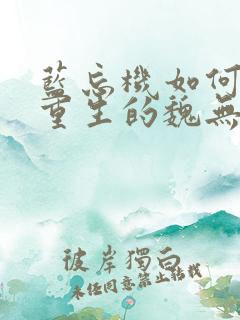 藍忘機如何
重生的魏無
彼岸獨白
未經同意禁止轉載